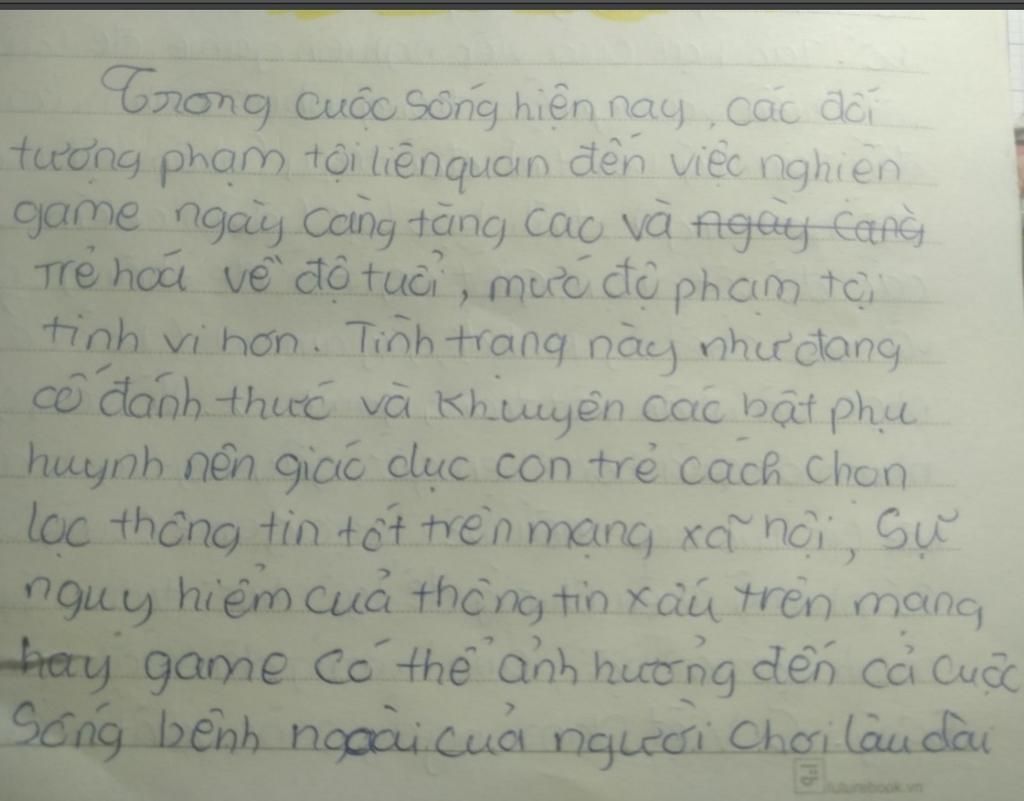 Trong cuộc sống hiện nay, các đối
tượng phạm tội liên quan đến việc nghiên
game ngày càng tăng cao và ngày càng
trẻ hoá về độ tuổi, mức độ phạm tội
tinh vi hơn. Tình trạng này như đang
cố đánh thức và khuyên các bật phụ
huynh nên giáo dục con trẻ cách chọn
lọc thông tin tốt trên mạng xã hội, sự
nguy hiểm của thông tin xấu trên mạng
hay game có thể ảnh hưởng đến cả cuộc
sống bênh ngoài của người chơi lâu dài
futurebook.vn